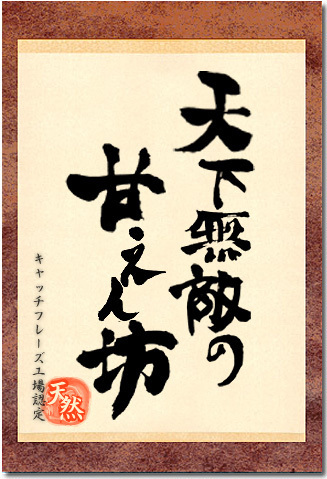 天下無敵の
甘えん坊
キャッチフレーズ工場認定
天然